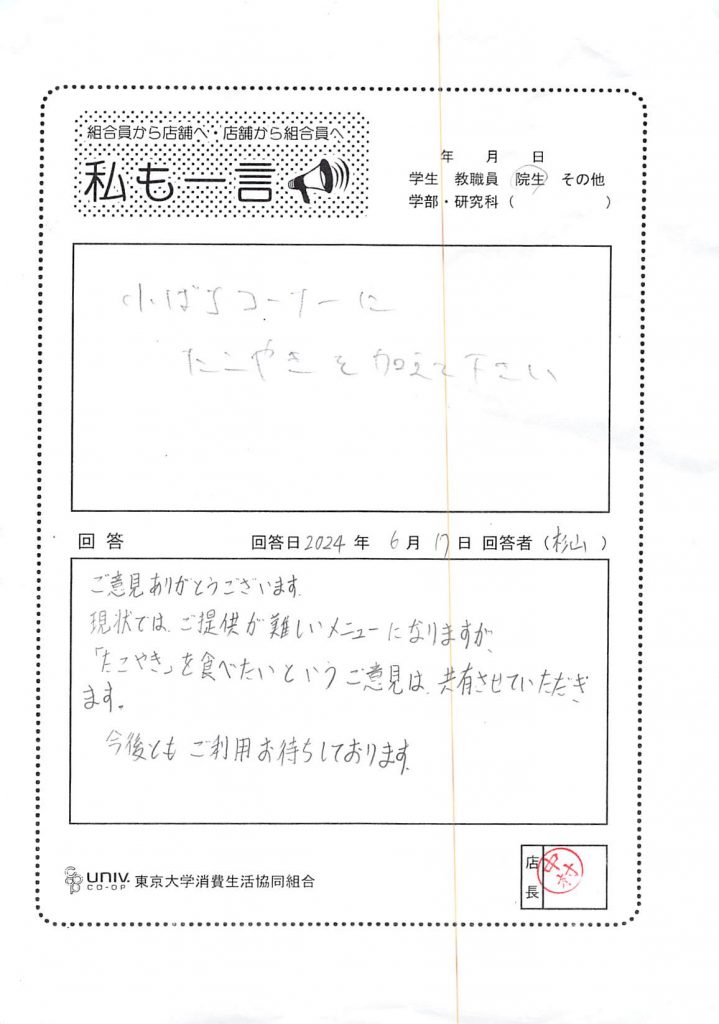 組合員から店舗へ・店舗から組合員へ
私も一言
年 月 日
学生 教職員 院生 その他
学部・研究科( )
小ばちコーナーに
たこやきを加えて下さい
回答 回答日2024年 6月17日 回答者(杉山)
ご意見ありがとうございます。
現状では、ご提供が難しいメニューになりますが、
「たこやき」を食べたいというご意見は、共有させていただき
ます。
今後ともご利用お待ちしております。
UNIV. CO-OP 東京大学消費生活協同組合
店長
中村